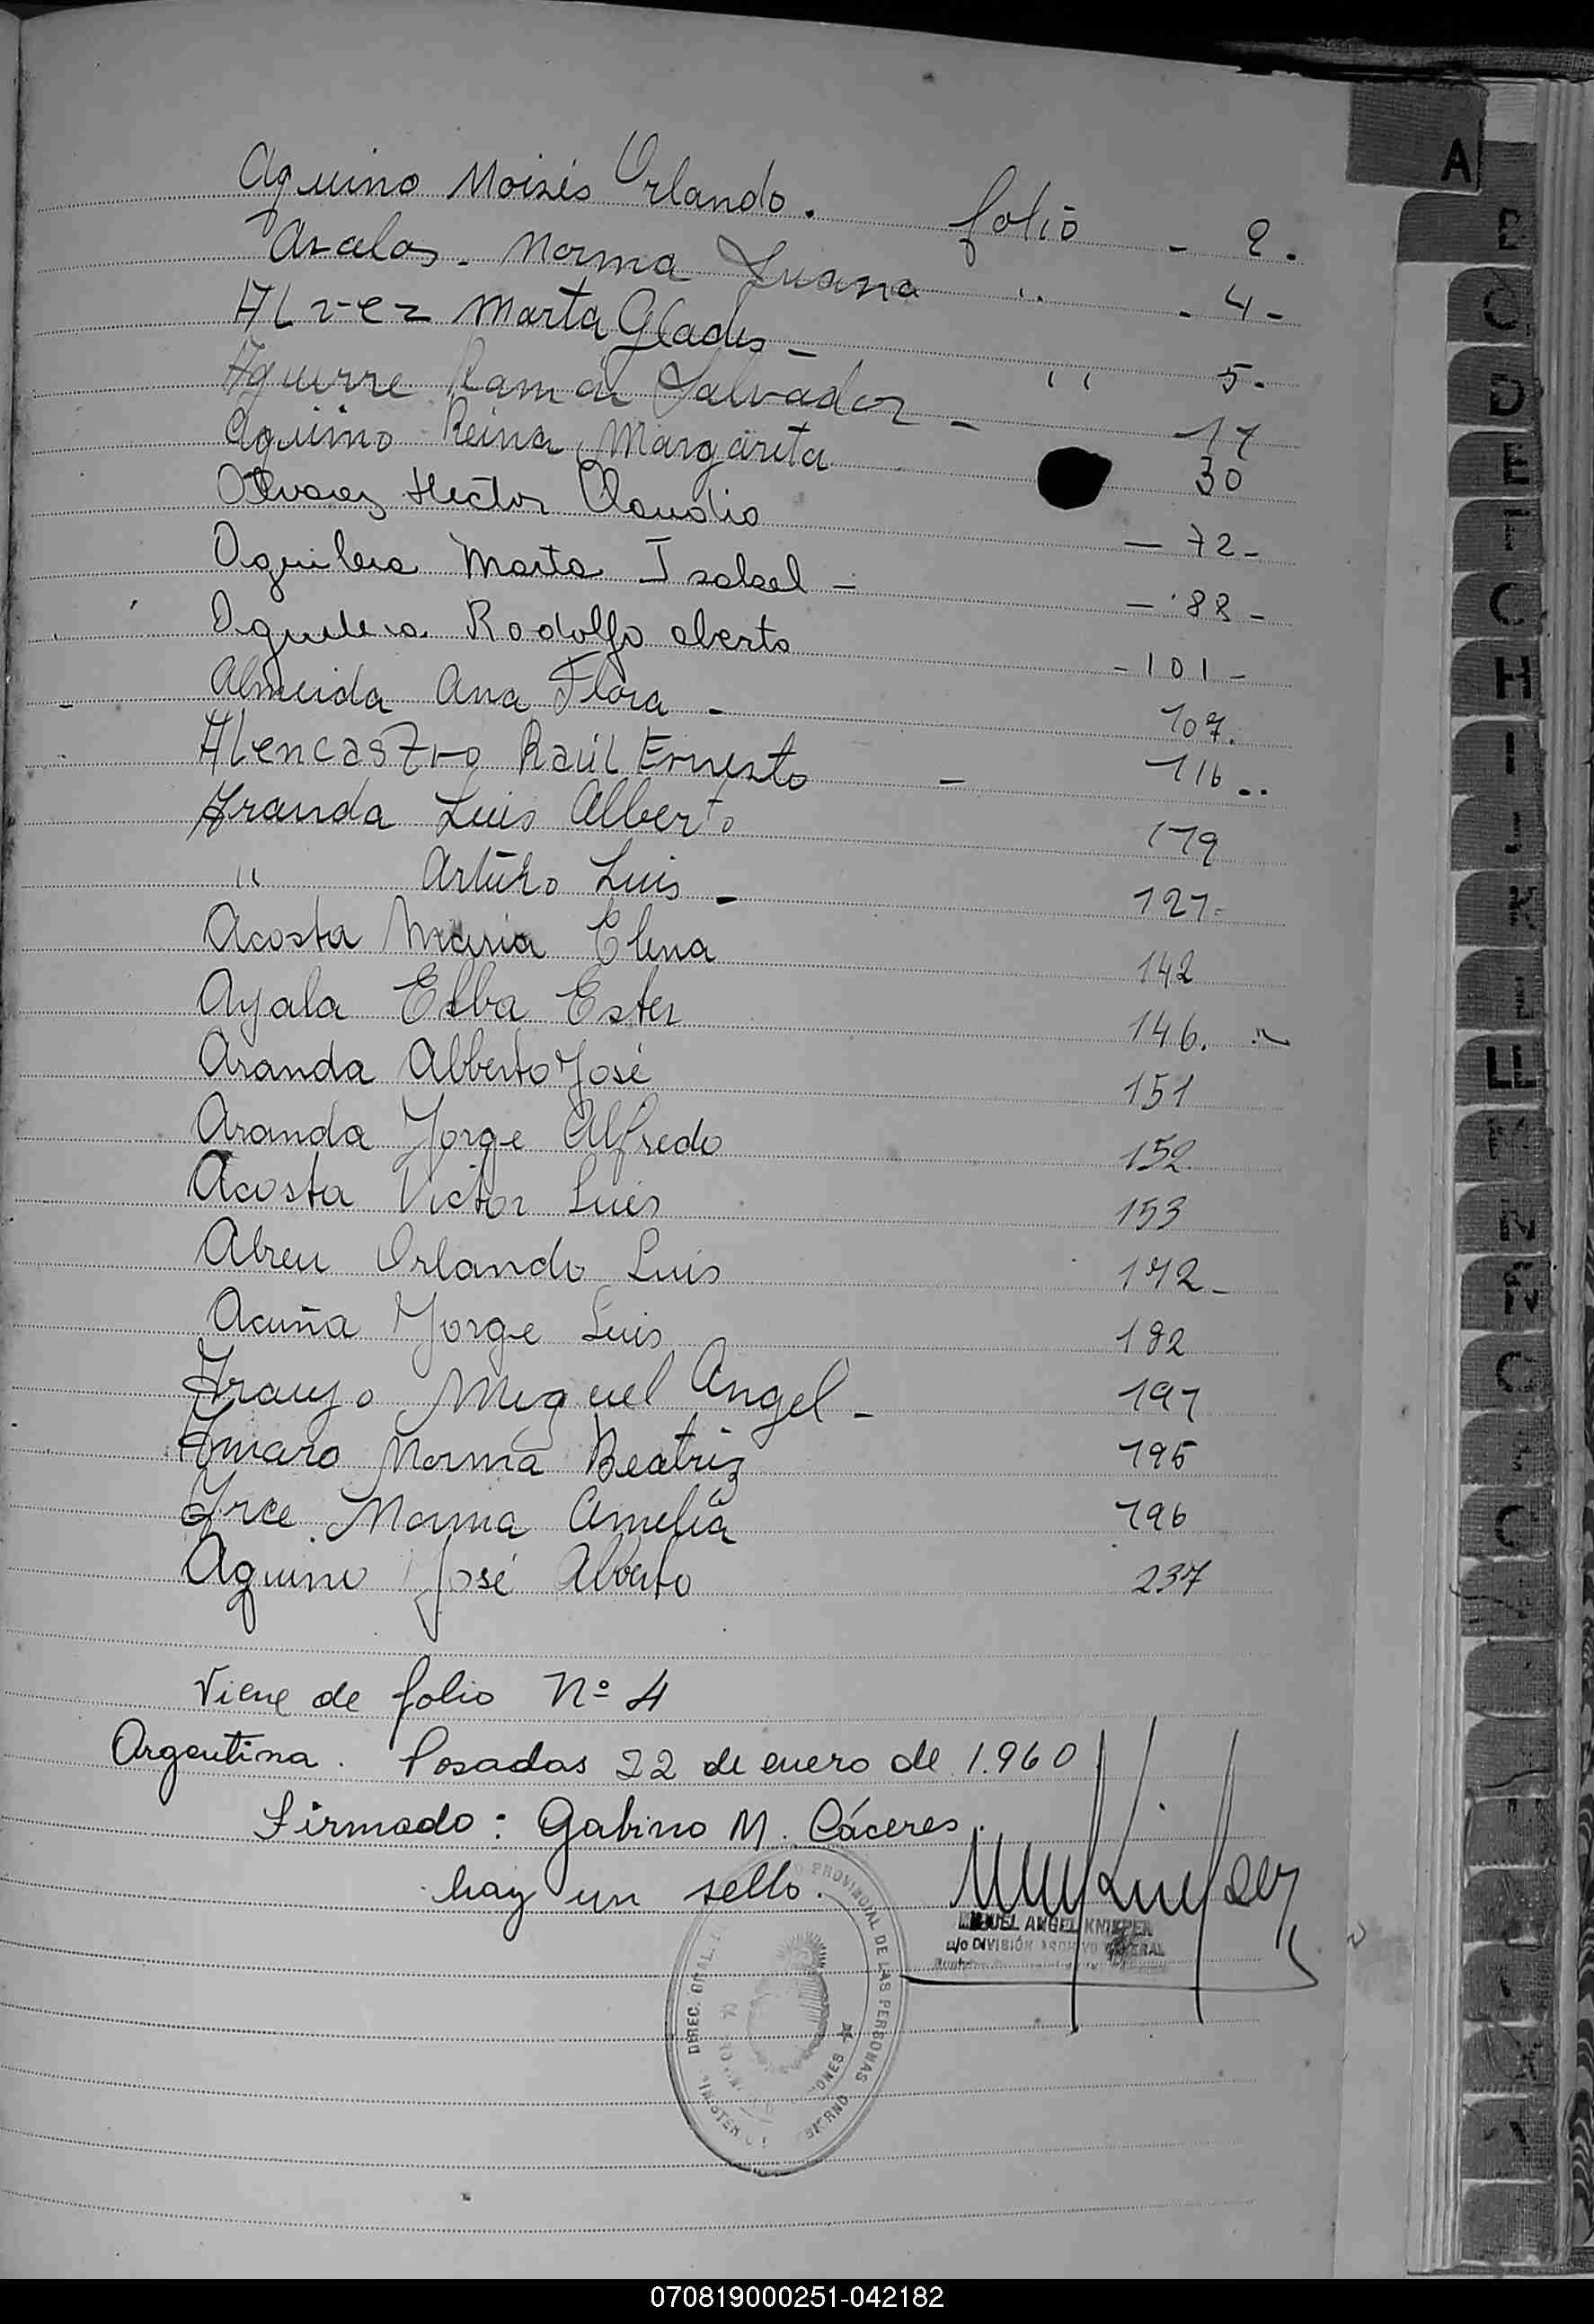 Aquino Moisés Orlando. folio - 2.
Avalos. Norma Juana " - 4 -
Alvez Marta Gladis - " 5 -
Aguirre Ramón Salvador - 17
Aquino Reina Margarita 30
Alvarez Hector Claudio - 72 -
Aguilera Marta Isabel - - 88 -
Aguilera Rodolfo alberto - 101 -
Almeida Ana Flora - 107.
Alencastro Raúl Ernesto - 116..
Aranda Luis Alberto 119
" Arturo Luis - 121-
Acosta Maria Elena 142
Ayala Elba Ester 146.
Aranda Alberto José 151
Aranda Jorge Alfredo 152.
Acosta Victor Luis 153
Abreu Orlando Luis 172 -
Acuña Jorge Luis 182
Araujo Miguel Angel - 191
Amaro Norma Beatriz 195
Arce Norma Amelia 196
Aquino José Alberto 237
Viene de folio Nº 4
Argentina. Posadas 22 de enero de 1.960
Firmado: Gabino M. Cáceres.
hay un sello.
MIGUEL ANGEL KNIEPER
a/c DIVISIÓN ARCHIVO GENERAL
DIREC. GRAL. PROVINCIAL DE LAS PERSONAS
A
B
C
D
E
F
G
H
I
070819000251-042182